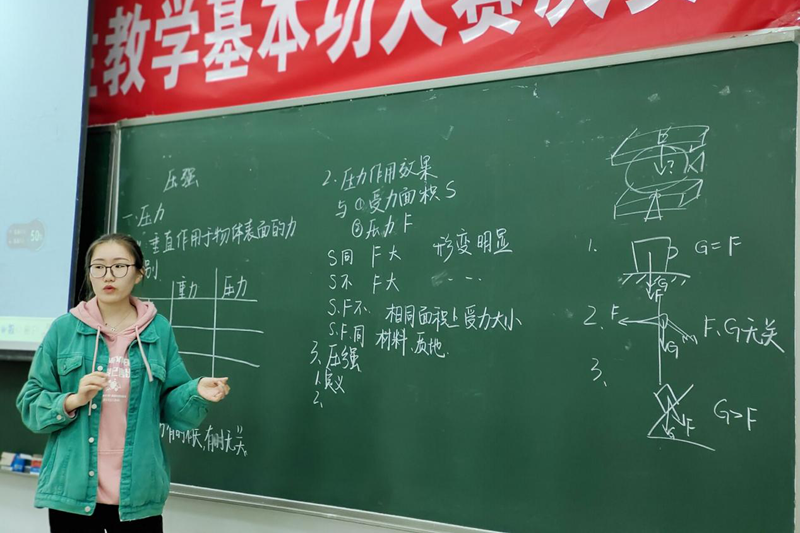 教学基本功大赛决赛
压强
一.压力
垂直作用于物体表面的力
别
重力 压力
有时无关。
2.压力作用效果
与①受力面积S
②压力F
S同 F大 形变明显
S不 F大 ....
S.F不. 相同面积上受力大小
S.F.同 材料.质地.
3.压强
1.定义
2.
1. G=F
F
2. F F、G无关
G
3. G>F
F
G